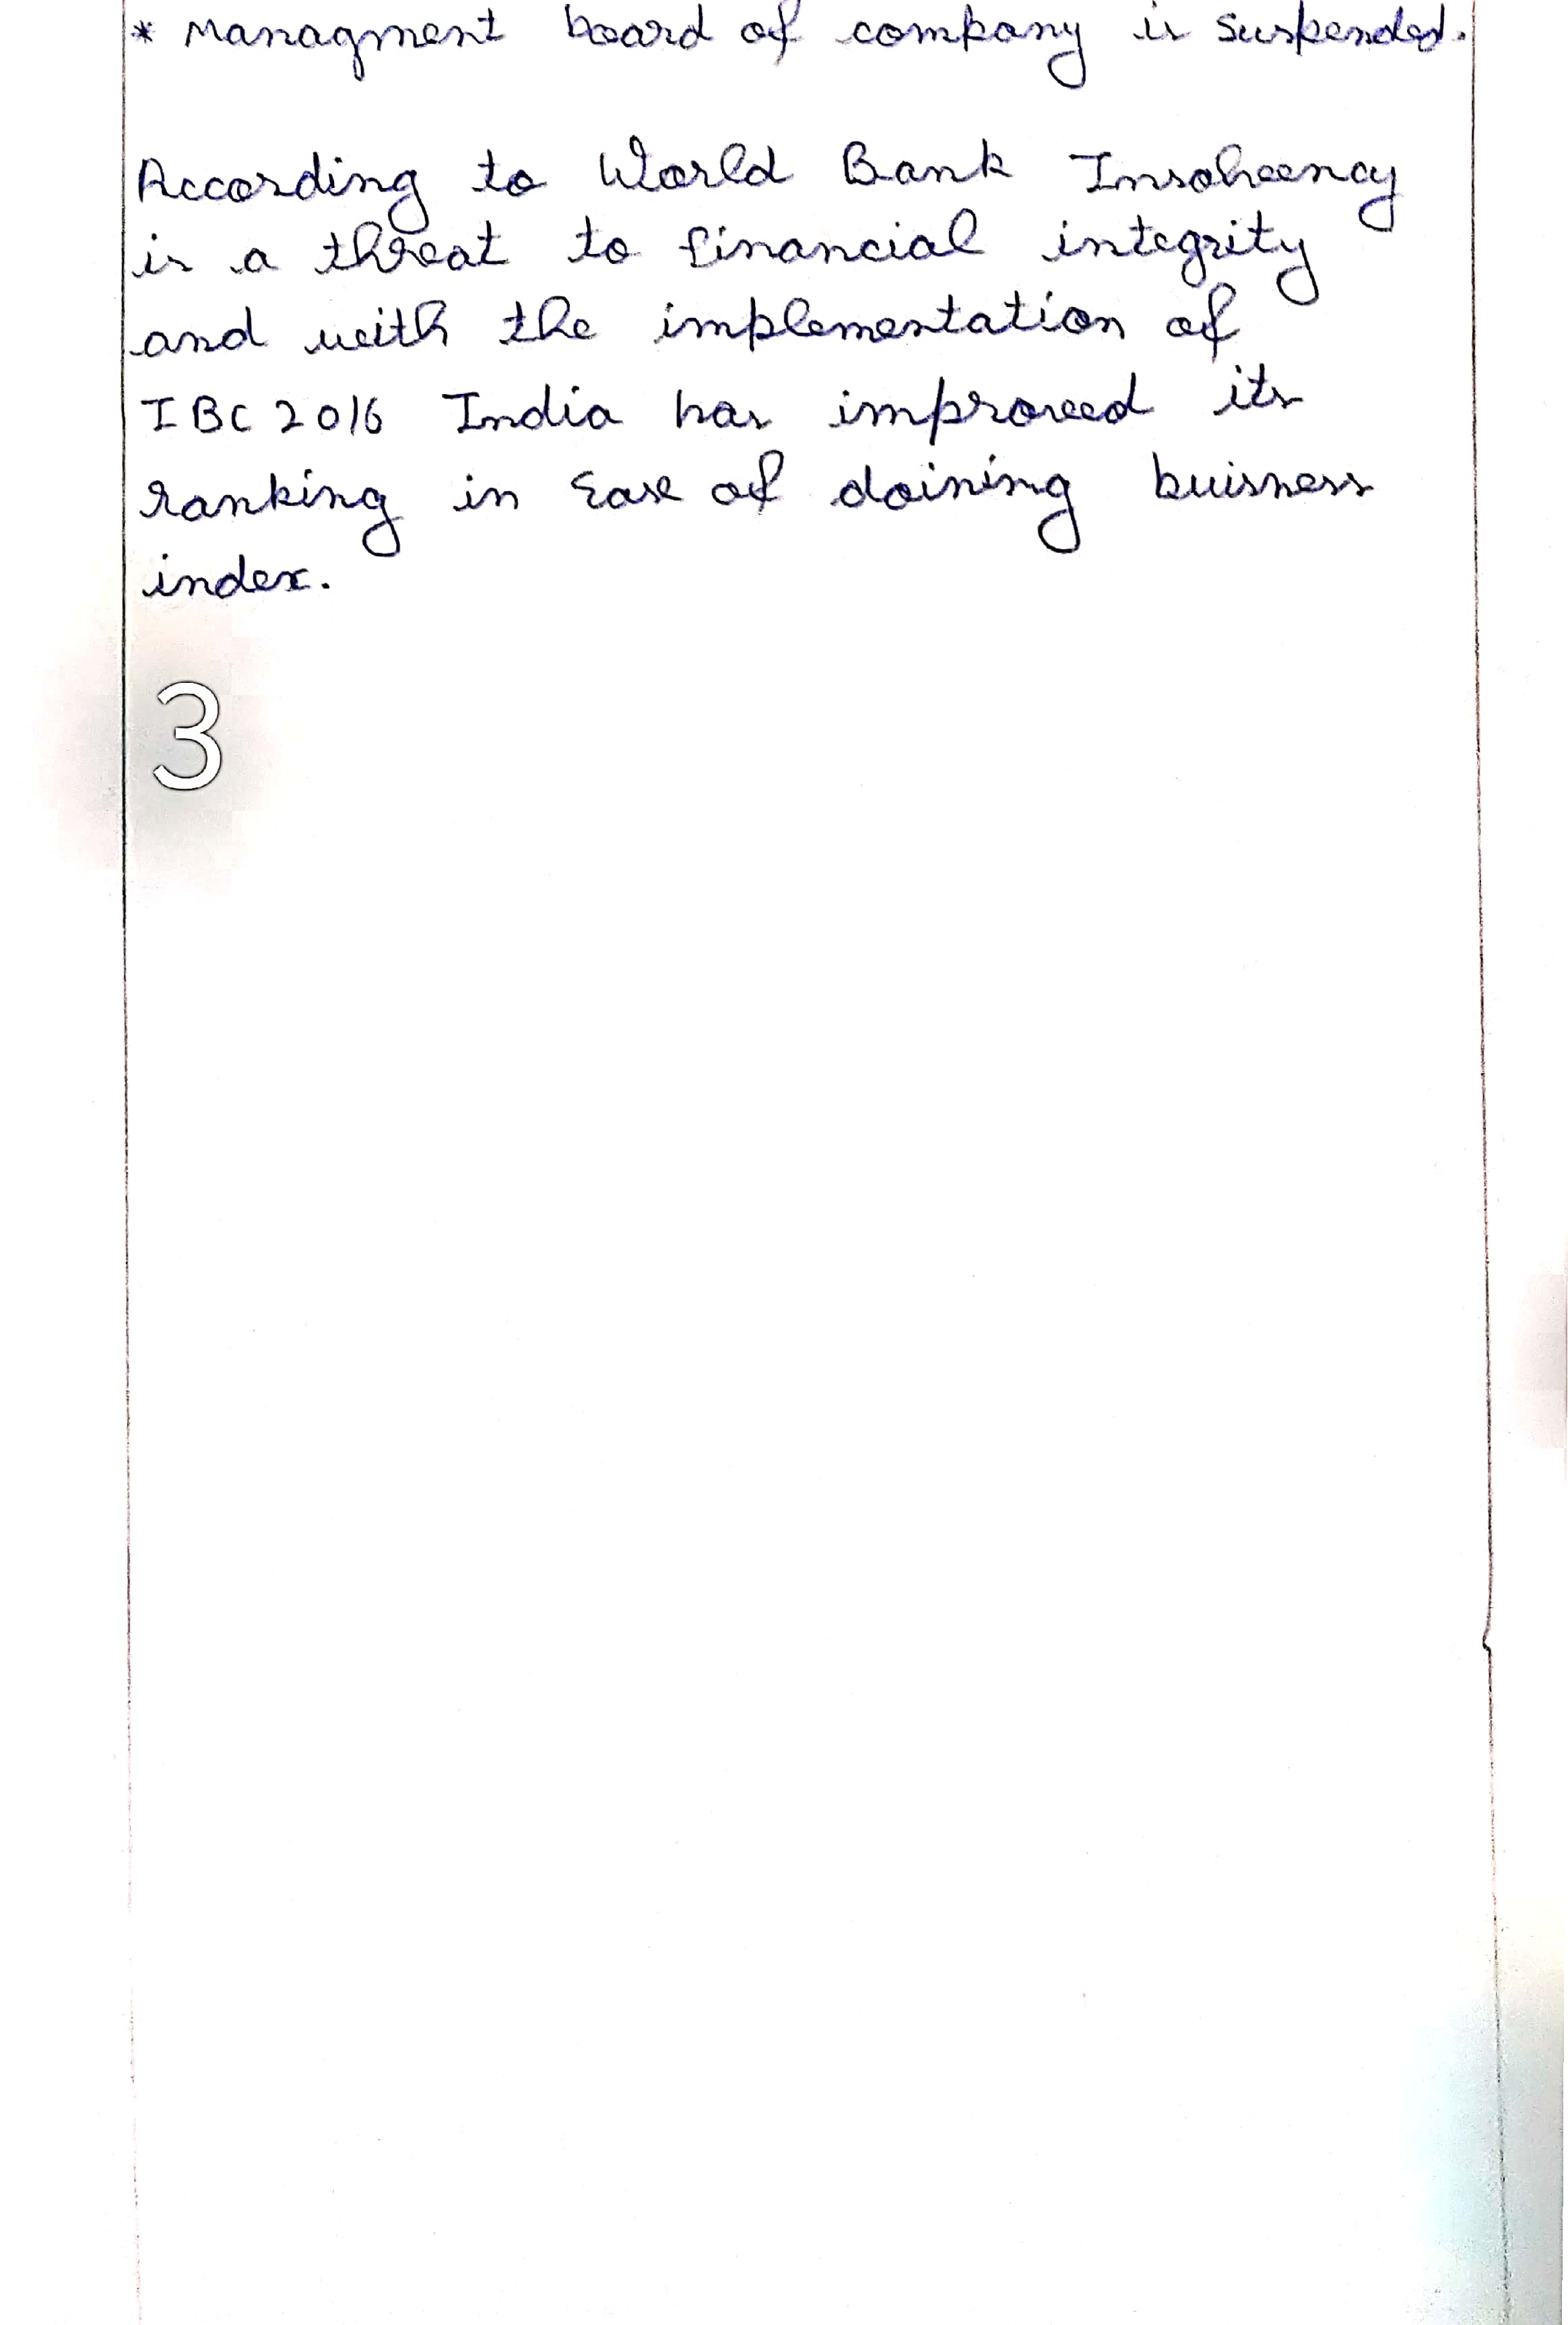 * Managment board of company is suspended.
According to World Bank Insolvency
is a threat to financial integrity
and with the implementation of
IBC 2016 India has improved its
ranking in Ease of doining buisness
index.
3